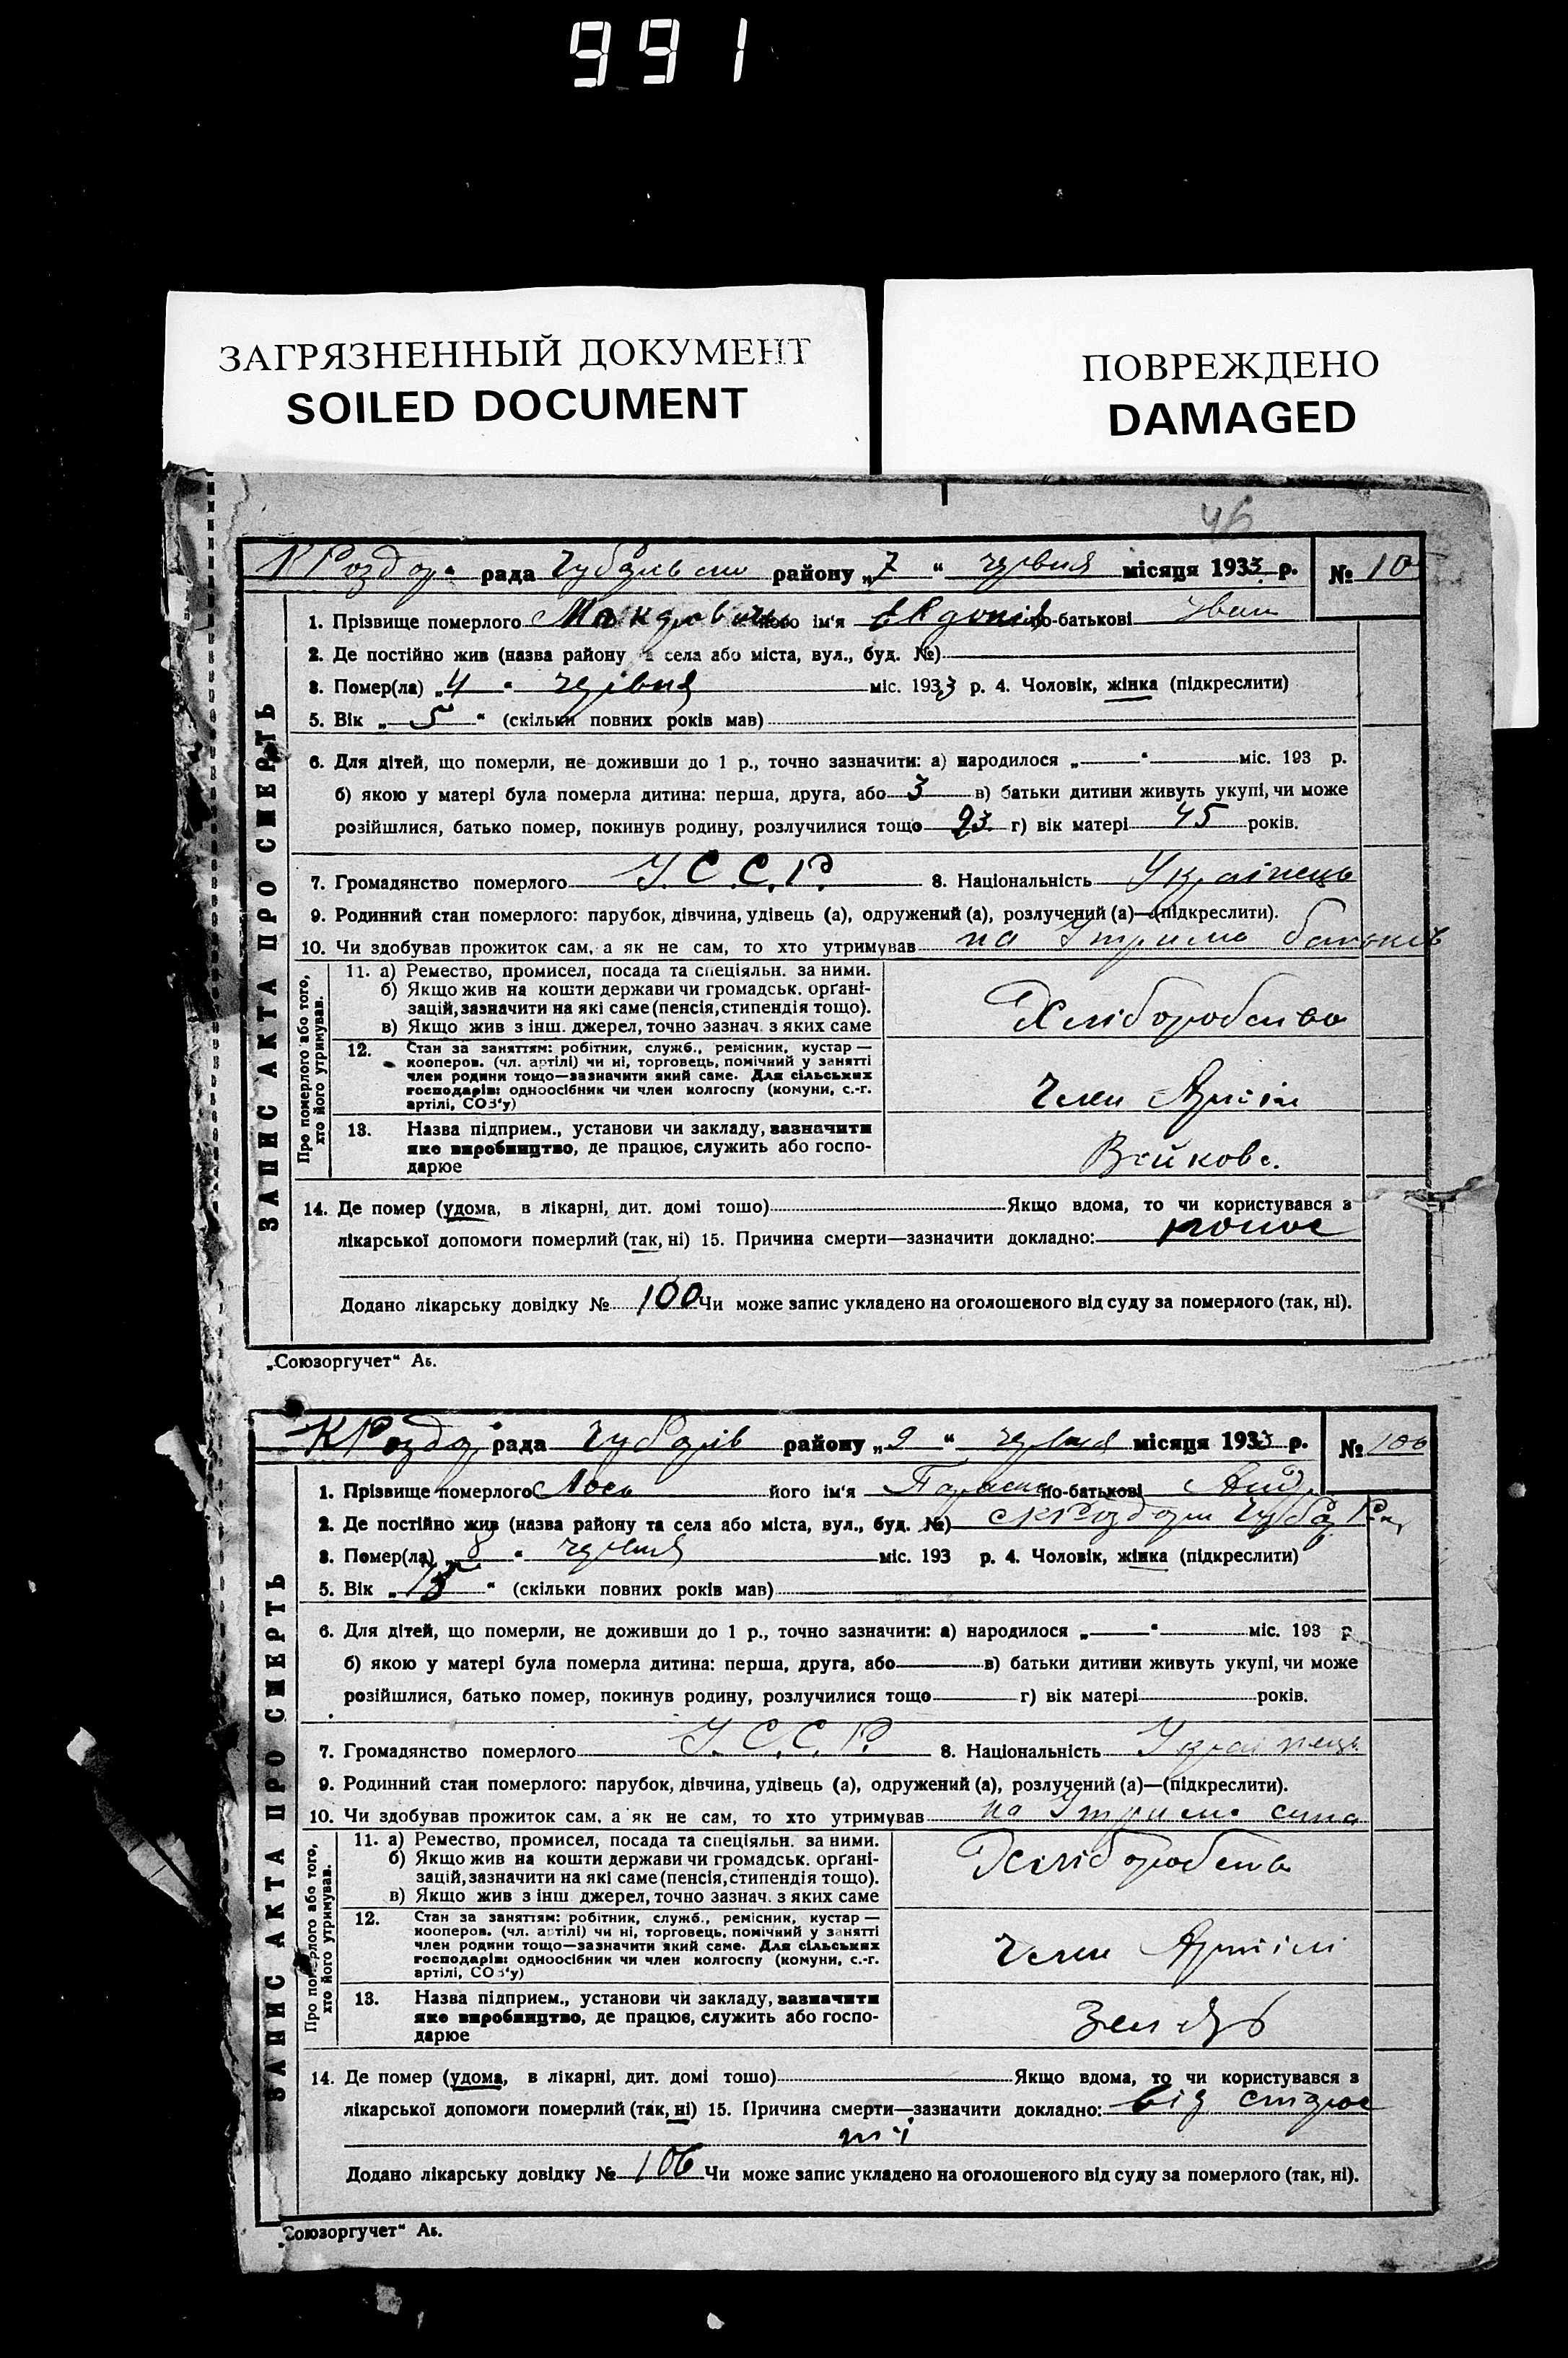 991
ЗАГРЯЗНЕННЫЙ ДОКУМЕНТ
SOILED DOCUMENT
ПОВРЕЖДЕНО
DAMAGED
46
ЗАПИС АКТА ПРО СМЕРТЬ
К Роздор. рада район​у „7“ червня місяця 1933 р. № 10
1. Прізвище померлого його ім'я по-батькові Іван
2. Де постійно жив (назва району та села або міста, вул., буд. №)
3. Помер(ла) „4“ червня міс. 1933 р. 4. Чоловік, жінка (підкреслити)
5. Вік „5“ (скільки повних років мав)
6. Для дітей, що померли, не доживши до 1 р., точно зазначити: а) народилося „ “ міс. 193 р.
б) якою у матері була померла дитина: перша, друга, або 3 в) батьки дитини живуть укупі, чи може
розійшлися, батько помер, покинув родину, розлучилися тощо г) вік матері 45 років.
7. Громадянство померлого У.С.С.Р. 8. Національність Українець
9. Родинний стан померлого: парубок, дівчина, удівець (а), одружений (а), розлучений (а)—(підкреслити).
10. Чи здобував прожиток сам, а як не сам, то хто утримував на Утрима батьків
Про померлого або того, хто його утримував.
11. а) Ремество, промисел, посада та спеціяльн. за ними.
б) Якщо жив на кошти держави чи громадськ. орґані-
зацій, зазначити на які саме (пенсія, стипендія тощо).
в) Якщо жив з інш. джерел, точно зазнач. з яких саме
Хліборобство
12. Стан за заняттям: робітник, служб., ремісник, кустар —
кооперов. (чл. артілі) чи ні, торговець, помічний у занятті
член родини тощо—зазначити який саме. Для сільських
господарів: одноосібник чи член колгоспу (комуни, с.-г.
артілі, СОЗ'у)
Член Артіли
13. Назва підприєм., установи чи закладу, зазначити
яке виробництво, де працює, служить або госпо-
дарює
Войкова.
14. Де помер (удома, в лікарні, дит. домі тощо) Якщо вдома, то чи користувався з
лікарської допомоги померлий (так, ні) 15. Причина смерти—зазначити докладно: понос
Додано лікарську довідку № 100 Чи може запис укладено на оголошеного від суду за померлого (так, ні).
„Союзоргучет“ Аб.
ЗАПИС АКТА ПРО СМЕРТЬ
К Роздор рада Чубарів району „9“ червня місяця 1933 р. № 106
1. Прізвище померлого Лось його ім'я по-батькові Андр
2. Де постійно жив (назва району та села або міста, вул., буд. №)
3. Помер(ла) „8“ червня міс. 193 р. 4. Чоловік, жінка (підкреслити)
5. Вік „75“ (скільки повних років мав)
6. Для дітей, що померли, не доживши до 1 р., точно зазначити: а) народилося „ “ міс. 193 р
б) якою у матері була померла дитина: перша, друга, або в) батьки дитини живуть укупі, чи може
розійшлися, батько помер, покинув родину, розлучилися тощо г) вік матері років.
7. Громадянство померлого У.С.С.Р. 8. Національність Українець
9. Родинний стан померлого: парубок, дівчина, удівець (а), одружений (а), розлучений (а)—(підкреслити).
10. Чи здобував прожиток сам, а як не сам, то хто утримував на Утрима сина
Про померлого або того, хто його утримував.
11. а) Ремество, промисел, посада та спеціяльн. за ними.
б) Якщо жив на кошти держави чи громадськ. орґані-
зацій, зазначити на які саме (пенсія, стипендія тощо).
в) Якщо жив з інш джерел, точно зазнач. з яких саме
Хліборобство
12. Стан за заняттям: робітник, служб., ремісник, кустар —
кооперов. (чл. артілі) чи ні, торговець, помічний у занятті
член родини тощо—зазначити який саме. Для сільських
господарів: одноосібник чи член колгоспу (комуни, с.-г.
артілі, СОЗ'у)
Член Артіли
13. Назва підприєм., установи чи закладу, зазначити
яке виробництво, де працює, служить або госпо-
дарює
14. Де помер (удома, в лікарні, дит. домі тощо) Якщо вдома, то чи користувався з
лікарської допомоги померлий (так, ні) 15. Причина смерти—зазначити докладно: від старос
ті
Додано лікарську довідку № 106 Чи може запис укладено на оголошеного від суду за померлого (так, ні).
„Союзоргучет“ Аб.